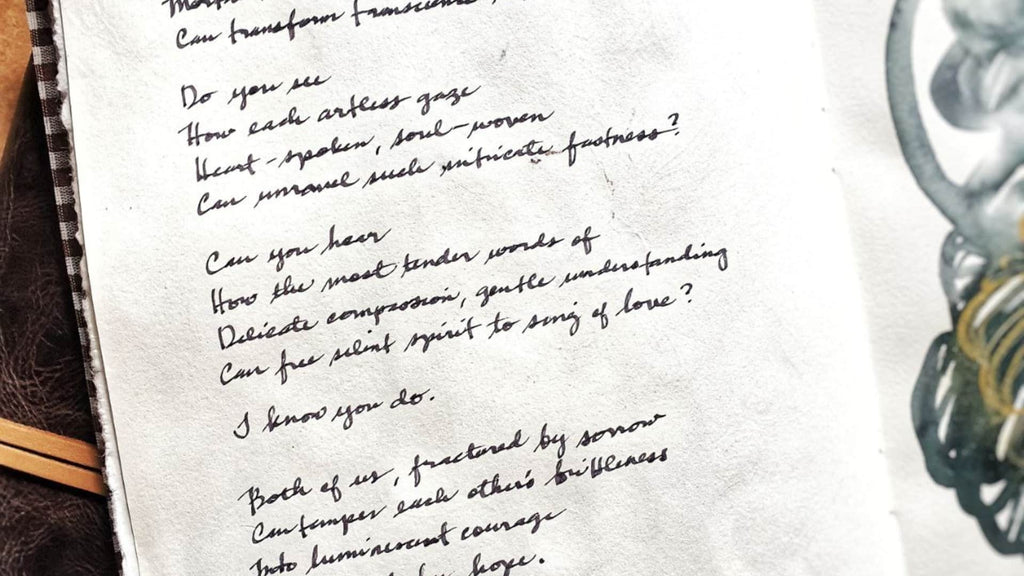 Can transform transcience
Do you see
How each artless gaze
Heart-spoken, soul-woven
Can unravel such intricate fastness?
Can you hear
How the most tender words of
Delicate compassion, gentle understanding
Can free silent spirit to sing of love?
I know you do.
Both of us, fractured by sorrow
Can temper each other's brittleness
Into luminescent courage
hope.